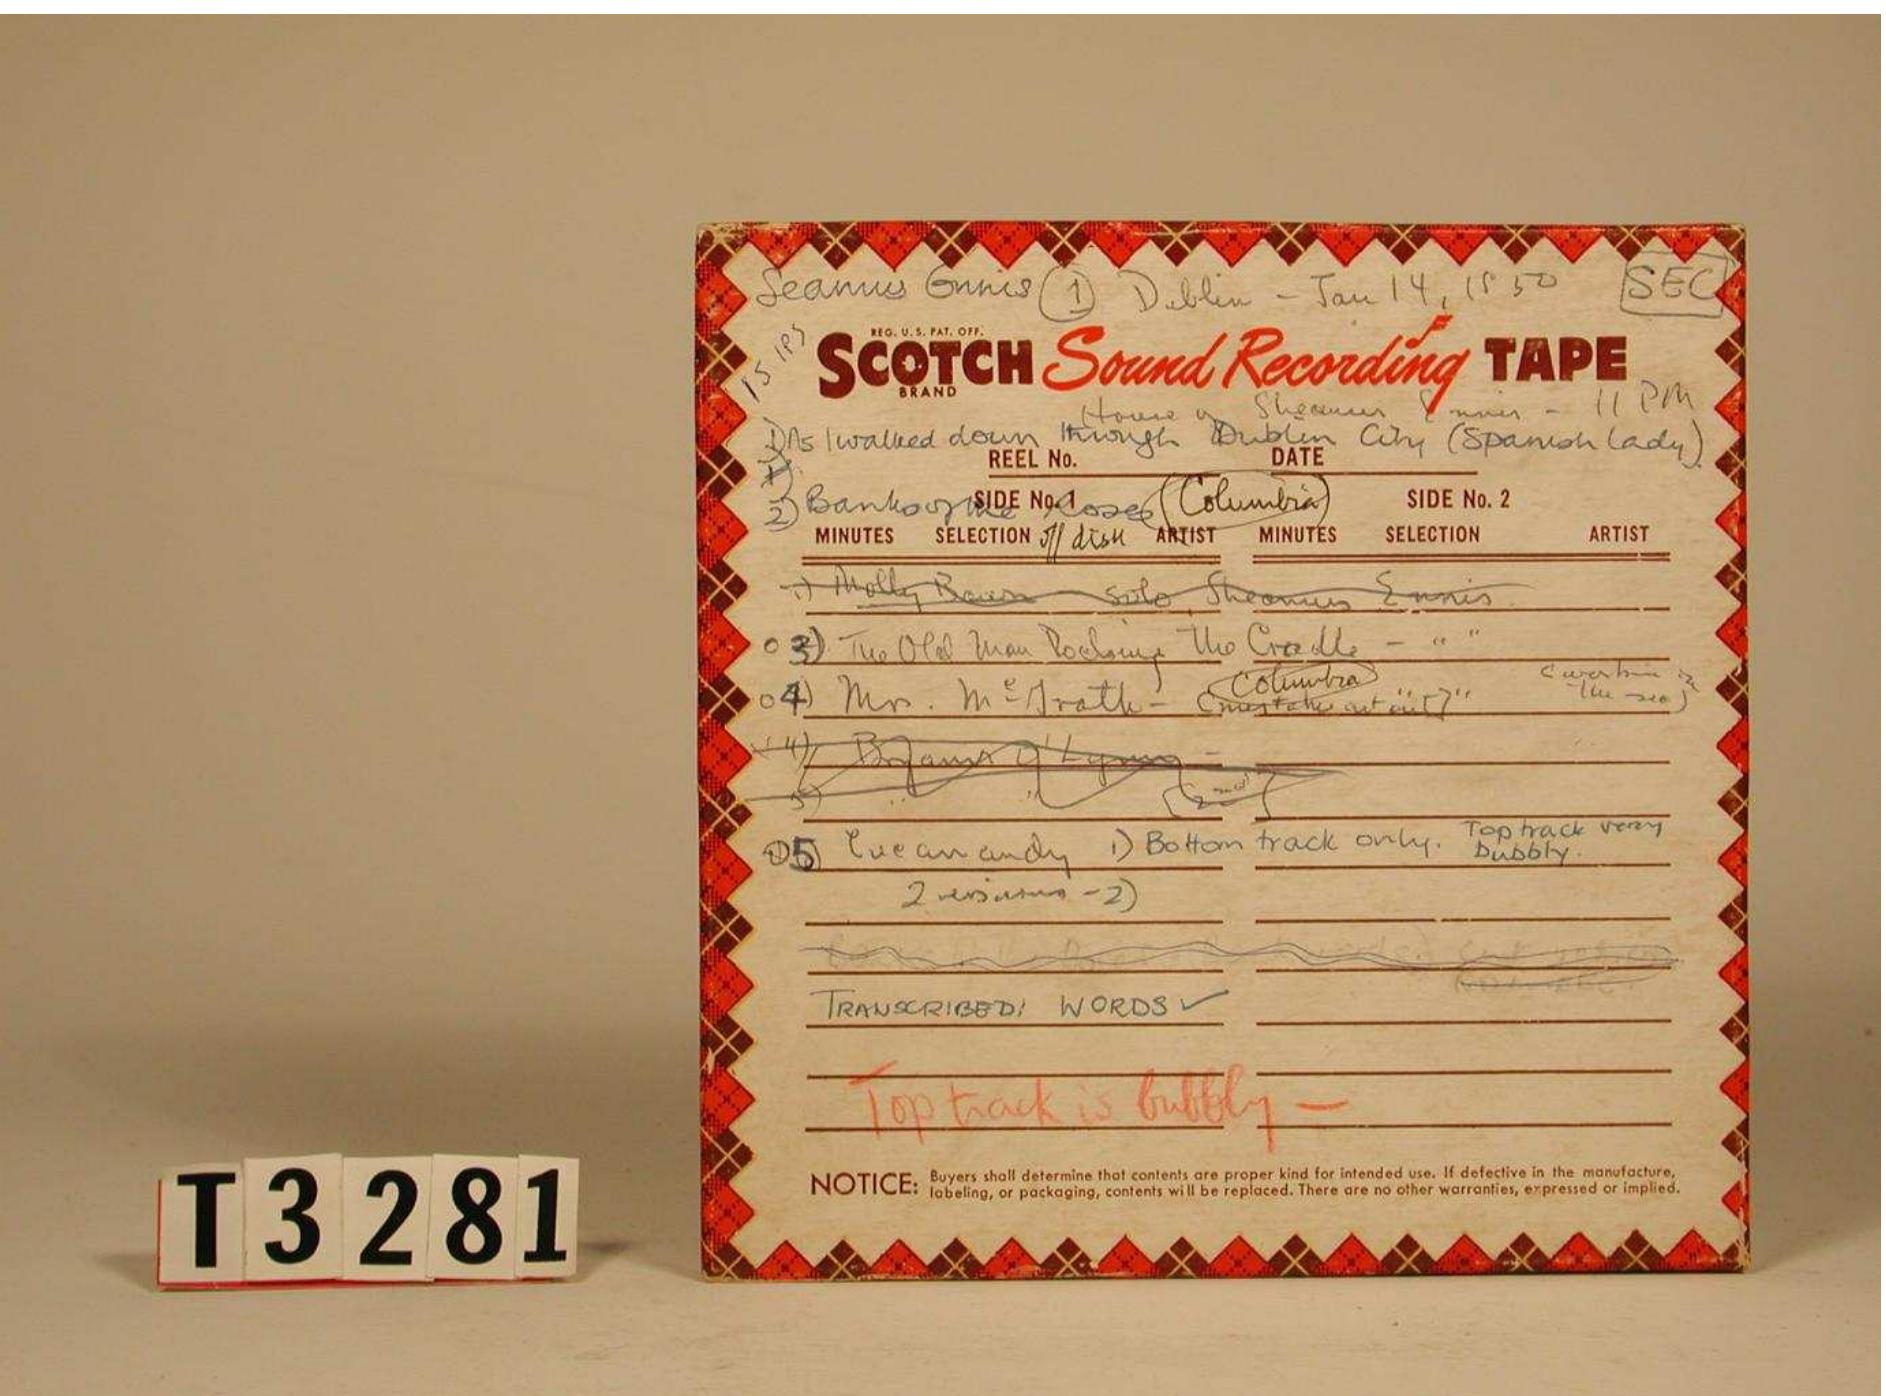 Seamus Ennis (1) Dublin - Jan 14, 1950 SEC
15 IPS
REG. U.S. PAT. OFF.
SCOTCH Sound Recording TAPE
BRAND
House of Sheamus Ennis - 11 PM
1) As I walked down through Dublin City (Spanish Lady)
REEL No. DATE
2) Banks of the Roses (Columbia)
SIDE No. 1 SIDE No. 2
MINUTES SELECTION off disk ARTIST MINUTES SELECTION ARTIST
1) Molly Bawn - solo Sheamus Ennis
03) The Old Man Rocking the Cradle - " "
04) Mrs. McGrath - Columbia
(mistake cut out)
the sea)
4)
5) " "
05) Cucanandy 1) Bottom track only. Top track very
bubbly.
2 versions - 2)
TRANSCRIBED: WORDS ✓
Top track is bubbly —
NOTICE: Buyers shall determine that contents are proper kind for intended use. If defective in the manufacture,
labeling, or packaging, contents will be replaced. There are no other warranties, expressed or implied.
T3281